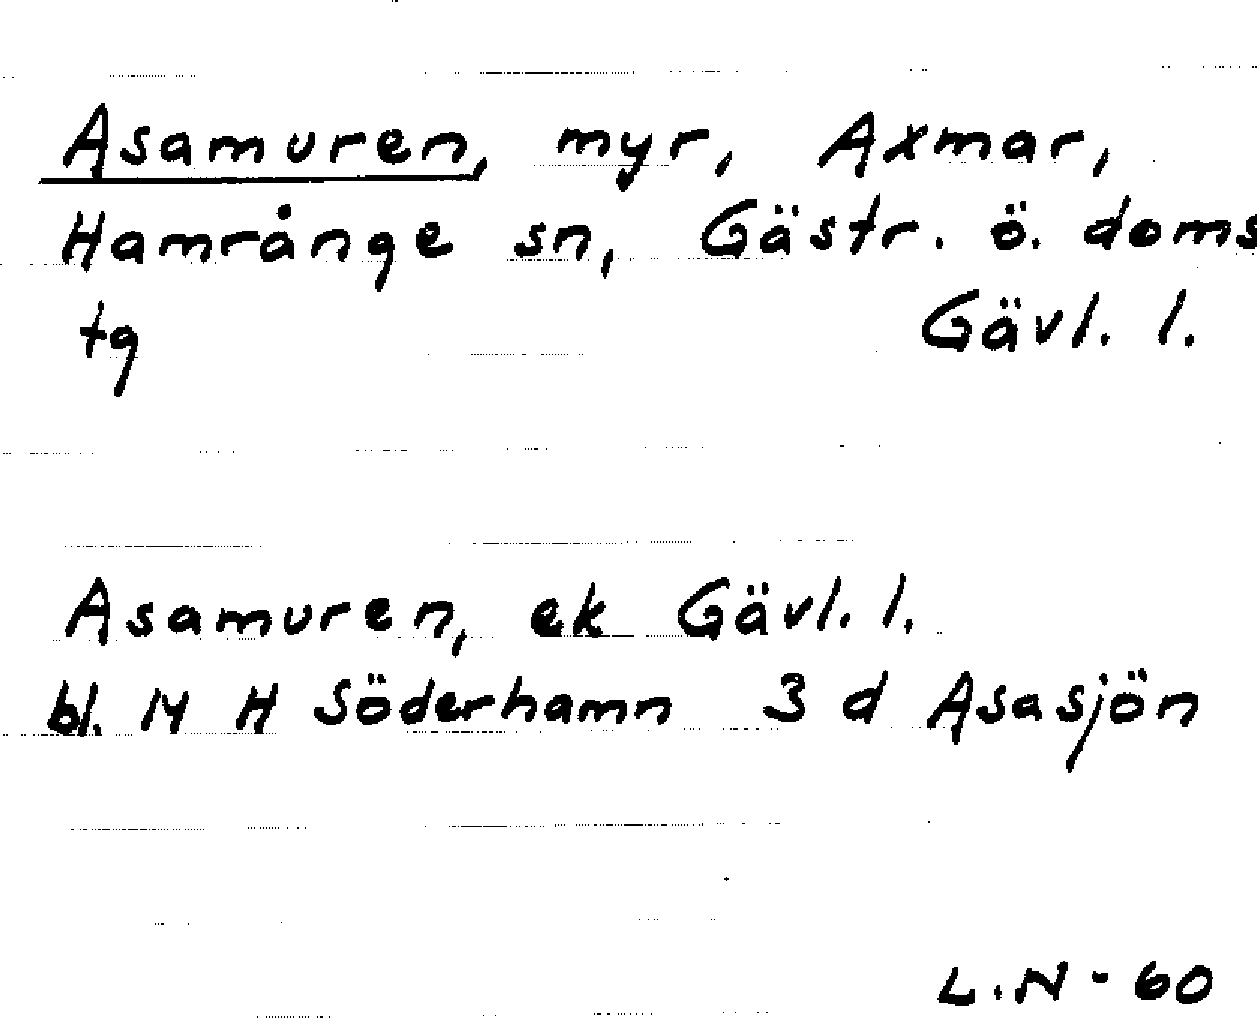 Asamuren, myr, Axmar,
Hamrånge sn, Gästr. ö. doms
tg Gävl. l.
Asamuren, ek Gävl. l.
bl. 14 H Söderhamn 3 d Asasjön
L.N - 60